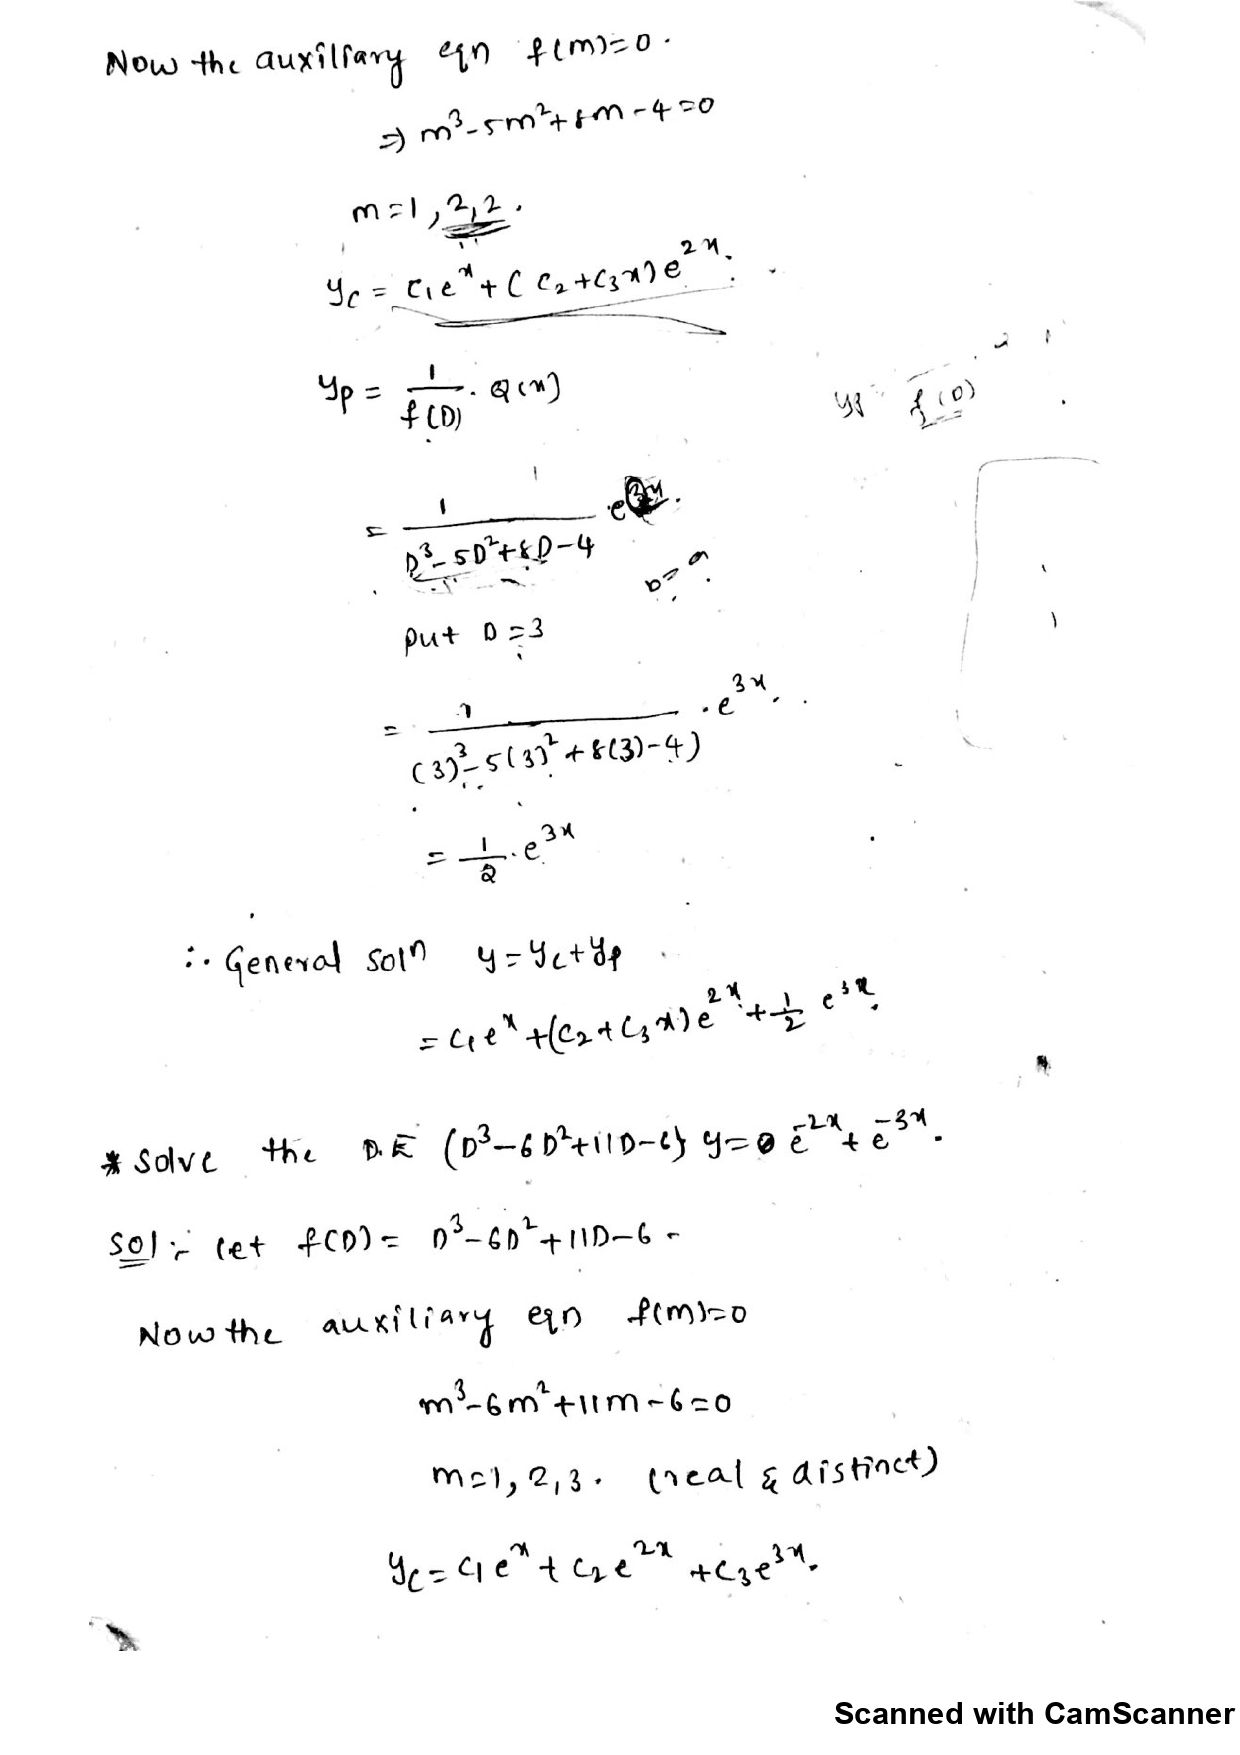 Now the auxiliary eqn f(m)=0.
⇒ m³-5m²+8m-4=0
m=1, 2,2.
yc = c₁eˣ+(c₂+c₃x)e²ˣ.
yp = 1/f(D) . Q(x)
yp = 1/f(D)
= 1/(D³-5D²+8D-4) . e³ˣ.
D=a
put D=3
= 1/((3)³-5(3)²+8(3)-4) . e³ˣ.
= 1/2 . e³ˣ
∴ General soln y=yc+yp
= c₁eˣ+(c₂+c₃x)e²ˣ+1/2 e³ˣ.
* Solve the D.E (D³-6D²+11D-6) y= e⁻²ˣ+e⁻³ˣ.
Sol:- let f(D)= D³-6D²+11D-6-
Now the auxiliary eqn f(m)=0
m³-6m²+11m-6=0
m=1, 2,3. (real & distinct)
yc=c₁eˣ+c₂e²ˣ+c₃e³ˣ.
Scanned with CamScanner